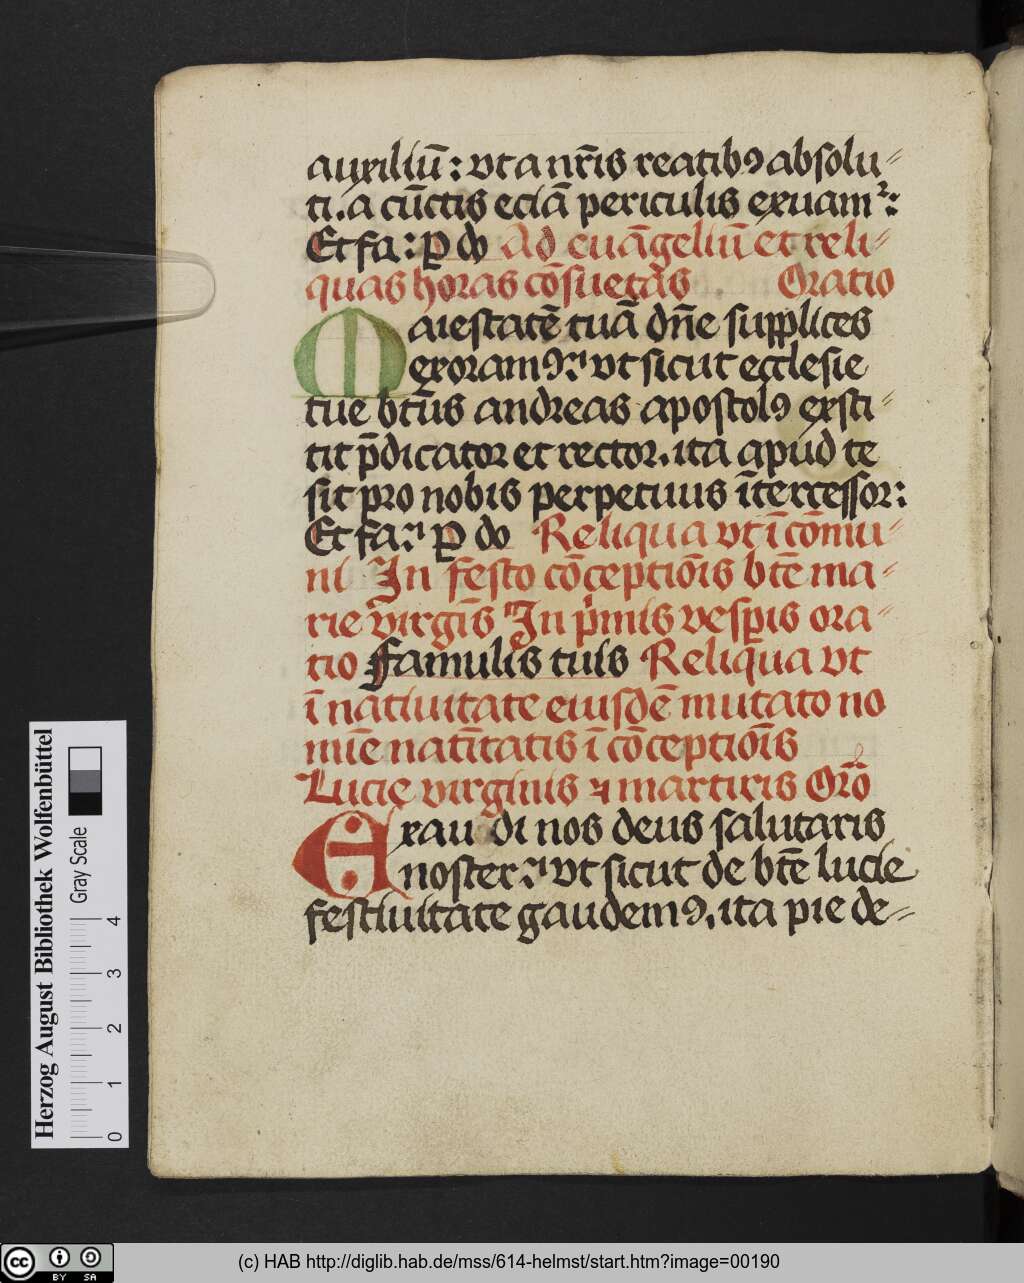 auxiliū: vt a nr̄is reatibꝯ absolu-
ti. a cūctis eciā periculis exuamᷣ:
Et fa: ꝑ do Ad euāgeliū et reli-
quas horas cōsuetas. Oratio
Maiestatē tuā dn̄e supplices
exoramꝯ: vt sicut ecclesie
tue btūs andreas apostolꝯ exsti-
tit p̄dicator et rector. ita apud te
sit pro nobis perpetuus ītercessor:
Et fa: ꝑ do Reliqua vt ī cōmu-
ni In festo cōcepciōis btē ma-
rie virgīs In pͥmis vesꝑis ora-
tio Famulis tuis Reliqua vt
ī natiuitate eiusdē mutato no
mīe natītatis ī cōceptiōīs
Lucie virginis ⁊ martiris Orō
Exau di nos deus salutaris
noster: vt sicut de btē lucie
festiuitate gaudemꝯ. ita pie de-
Herzog August Bibliothek Wolfenbüttel
Gray Scale
0 1 2 3 4
cc BY SA
(c) HAB http://diglib.hab.de/mss/614-helmst/start.htm?image=00190